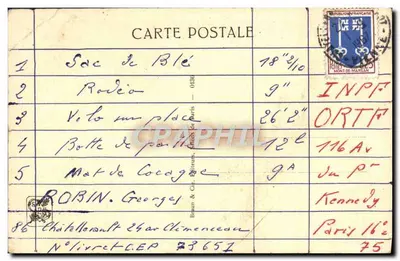 CARTE POSTALE
1 Sac de Blé 18" 2/10
2 Rodéo 9" INPF
3 Velo sur place 26' 2" ORTF
4 Botte de paille 12 116 Av
5 Mat de Cocagne 9 du Pt
ROBIN Georges Kennedy
86 Châtellerault 24 av Clémenceau Paris 16e
N° livret CEP 73651 75